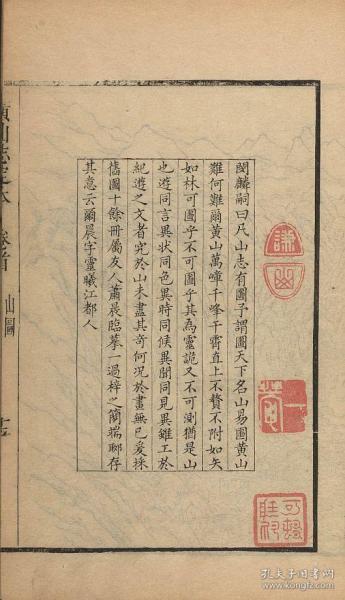 閔麟嗣曰凡山志有圖予謂圖天下名山易圖黃山
難何難爾黃山萬嶂千峰干霄直上不贅不附如矢
如林可圖乎不可圖乎其為靈詭又不可測猶是山
也遊同言異狀同色異時同候異聞同見異雖工於
紀遊之文者究於山未盡其奇何況於畫無已爰採
舊圖十餘冊屬友人蕭晨臨摹一過梓之簡端聊存
其意云爾晨字靈曦江都人
黃山志定本
卷首
山圖
孔夫子旧书网
www.kongfz.com